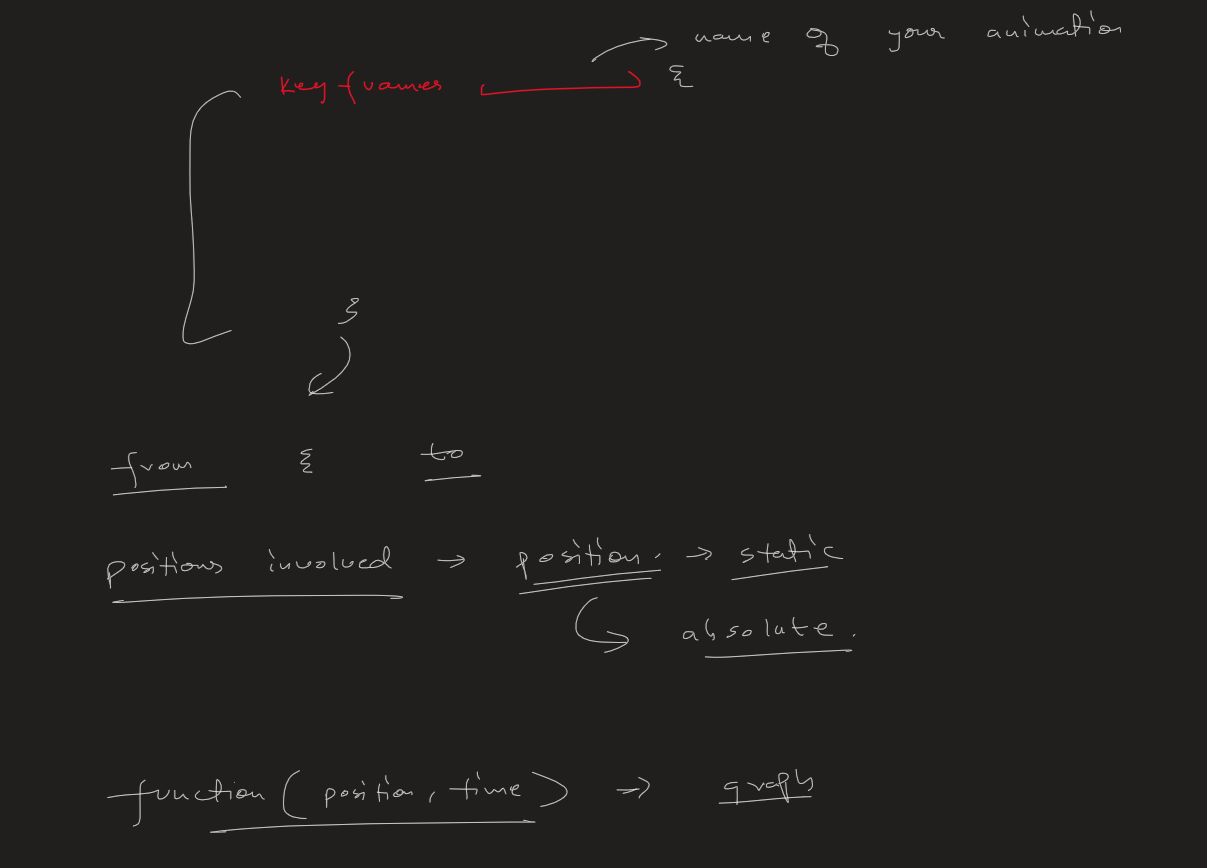 name of your animation
keyframes {
}
from { to
positions involved → position. → static
absolute.
function(position, time) → graph